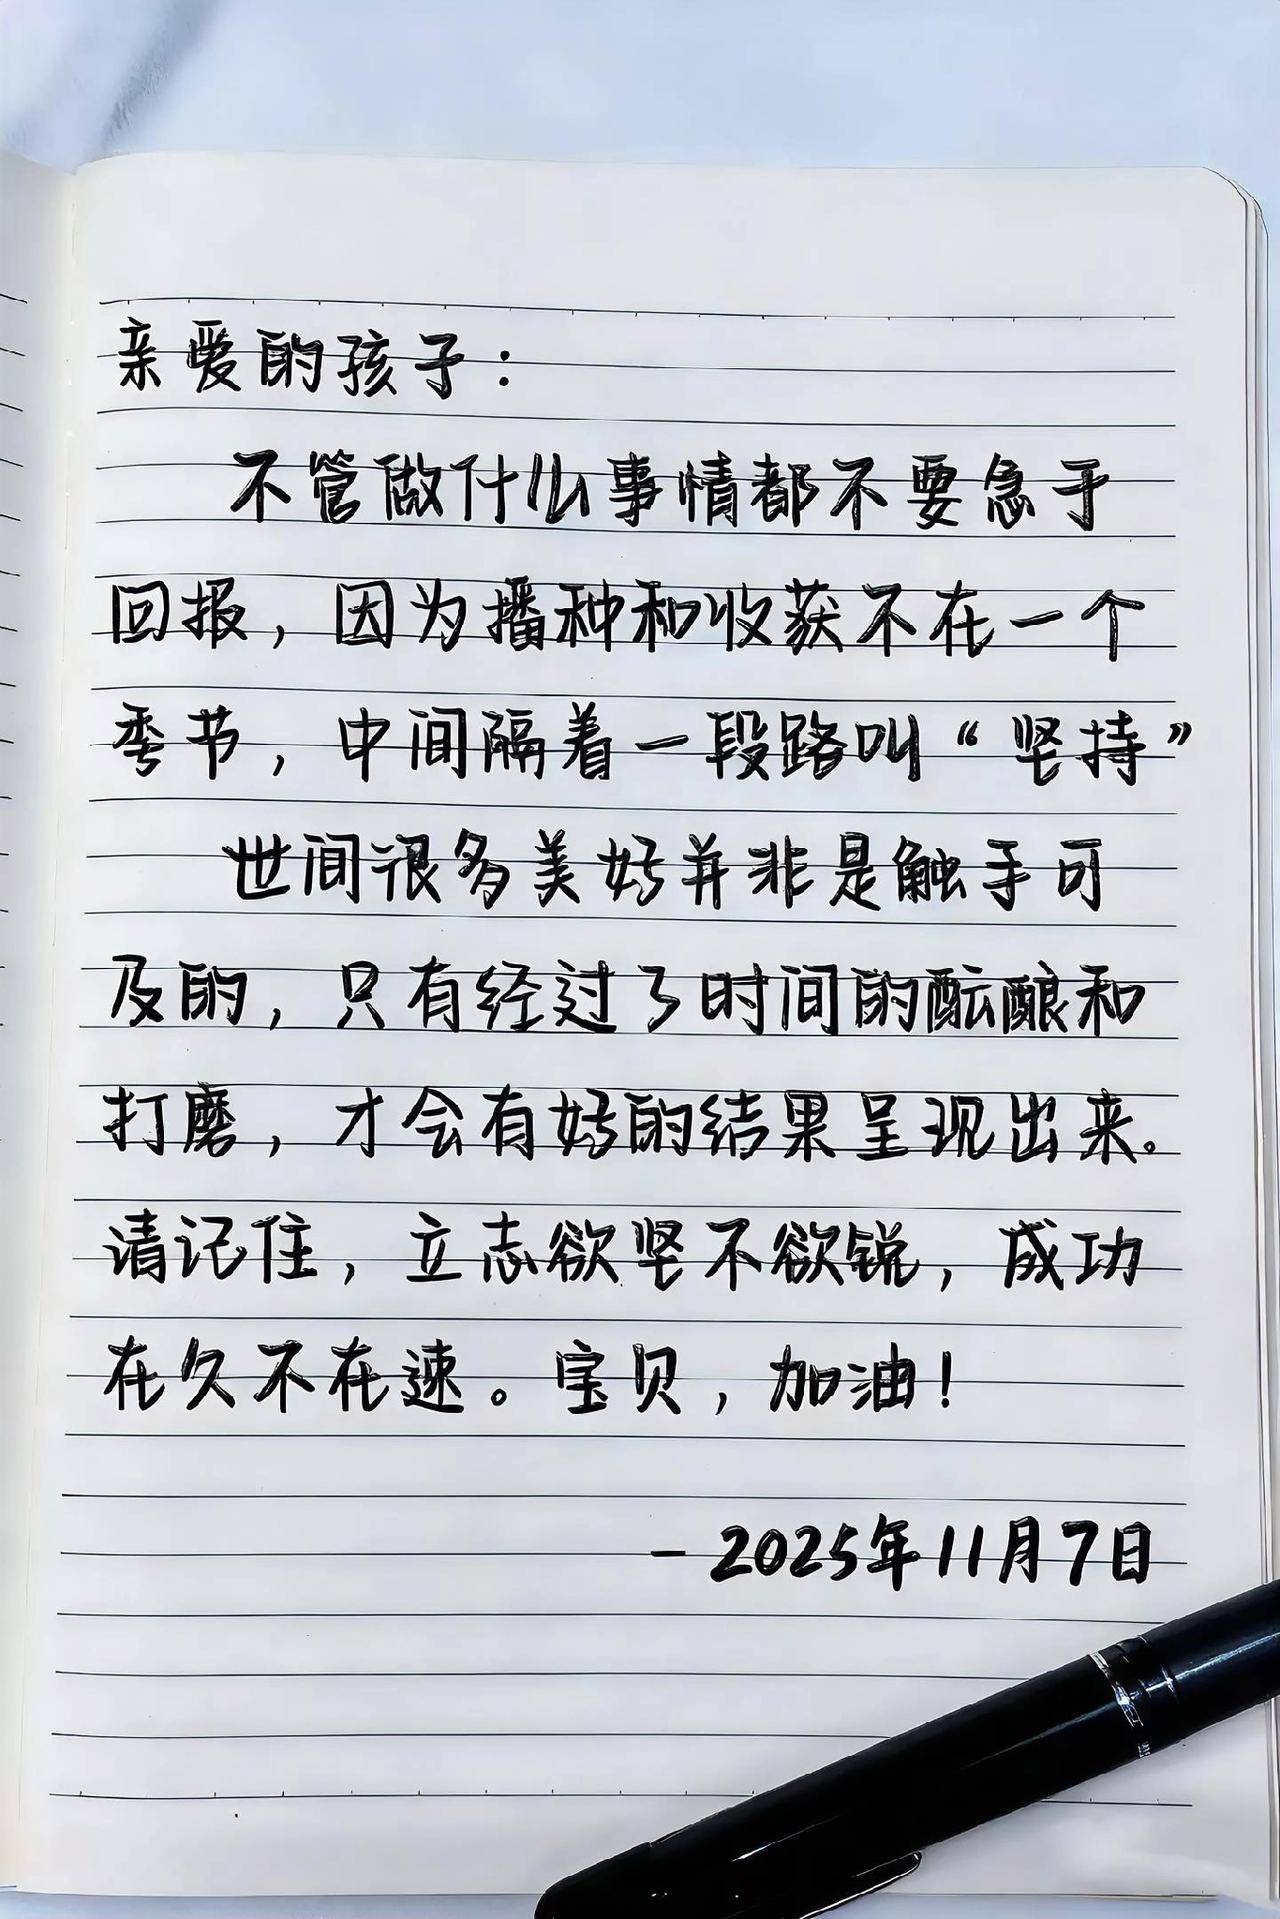 亲爱的孩子：
不管做什么事情都不要急于
回报，因为播种和收获不在一个
季节，中间隔着一段路叫“坚持”
世间很多美好并非是触手可
及的，只有经过了时间的酝酿和
打磨，才会有好的结果呈现出来。
请记住，立志欲坚不欲锐，成功
在久不在速。宝贝，加油！
-2025年11月7日